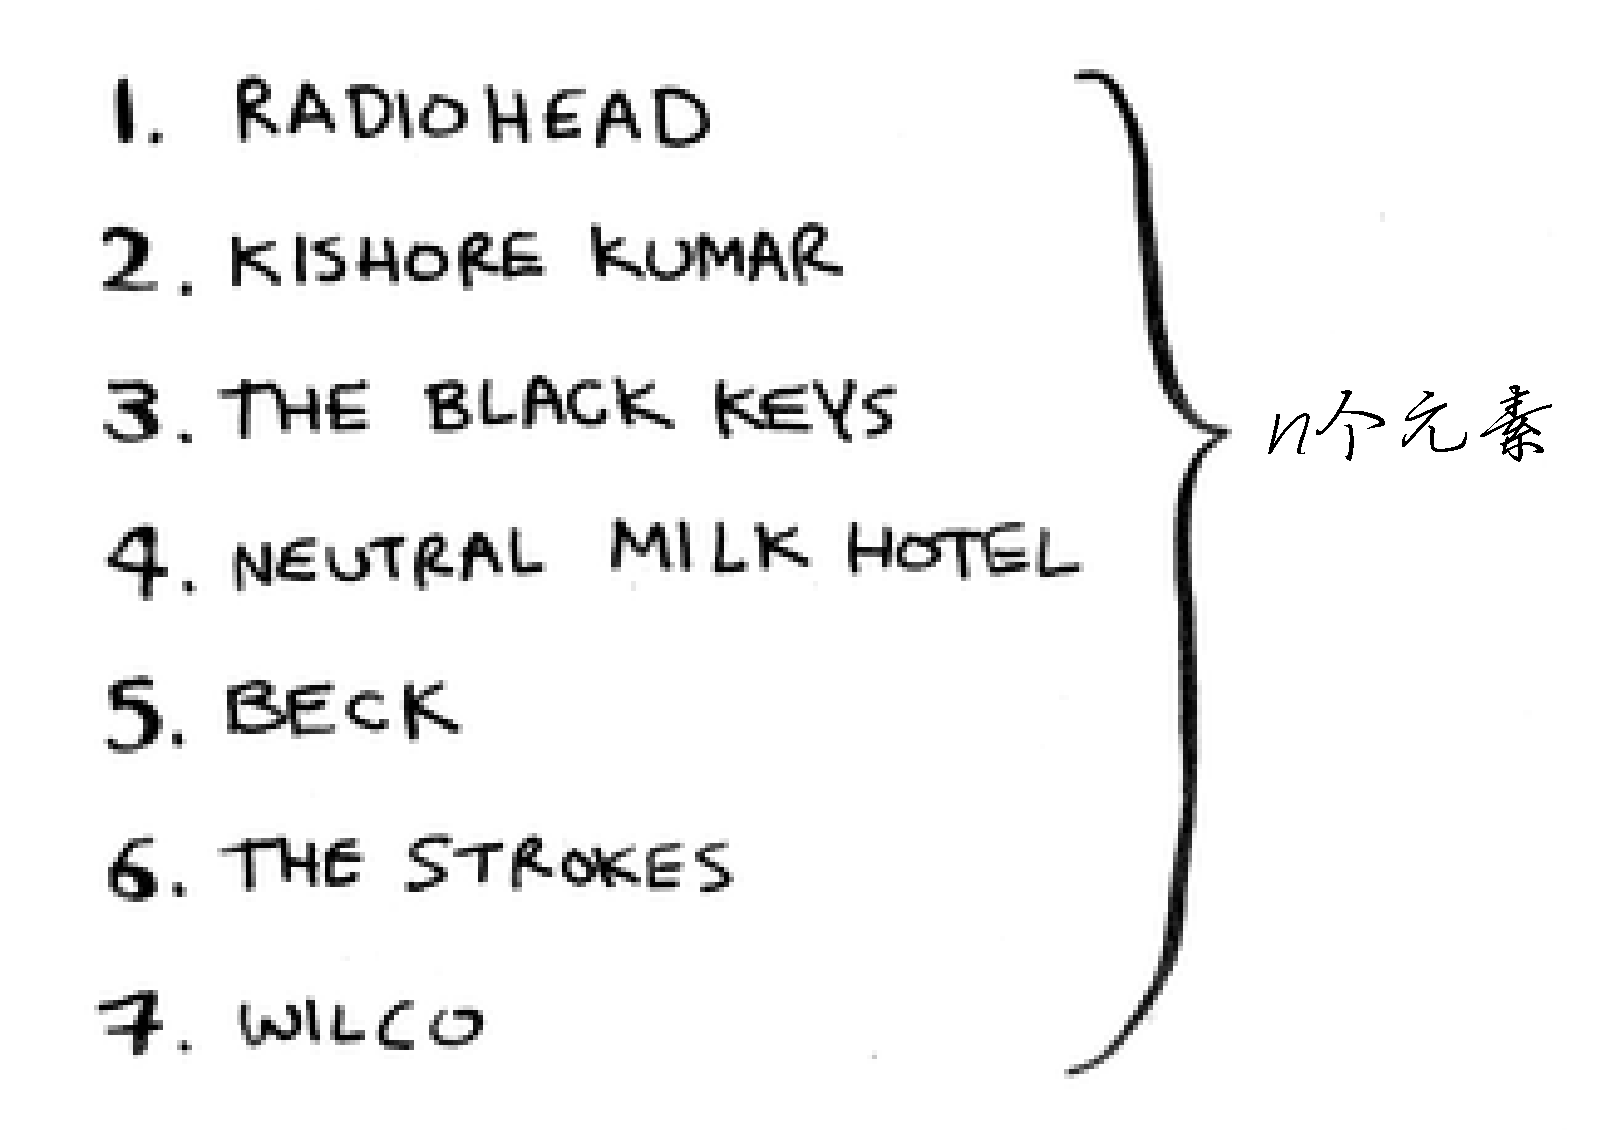 1. RADIOHEAD
2. KISHORE KUMAR
3. THE BLACK KEYS
n个元素
4. NEUTRAL MILK HOTEL
5. BECK
6. THE STROKES
7. WILCO